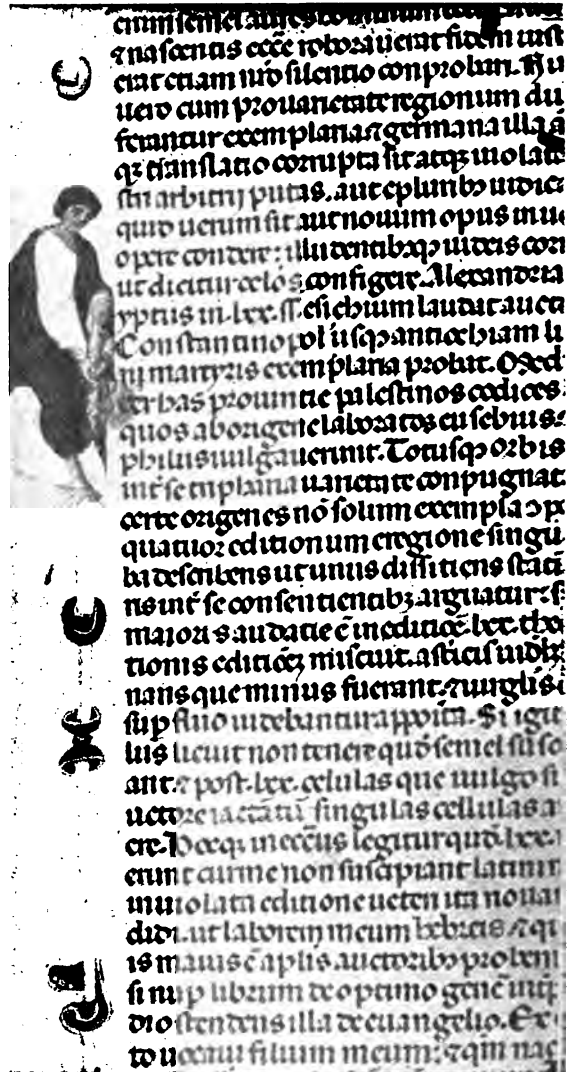 enim semel aures hominum
⁊ nascentis eccē roborauerat fidem iust
erat etiam nr̄o silentio conprobari. Nū
uero cum pro uarietate regionum du
ferantur exemplaria ⁊ germana illa a
qʒ translatio corrupta sit atqʒ uiolata
stri arbitrij putas. aut e pluribʒ iudica
quid uerum sit aut nouum opus in ue
opere condere: illudentibʒqʒ iudeis corn
ut dicitur oculos configere. Alexandria
yptus in .lxx. esichium laudat aucto
Constantinopol usqʒ antiochiam lu
ni martyris exemplaria probat. Medi
ter has prouintie palestinos codices
quos ab origene laboratos eusebius
philus uulgauerunt. Totusqʒ orbis
int̄ se uarietate conpugnat
certe origenes nō solum exempla
quatuor editionum e regione singu
ba describens ut unus dissitiens stati
ris int̄ se consentientibʒ arguatur: s
maioris audatie ē in editiōe .lxx. theo
tionis editiōeʒ miscuit. astericis
nans que minus fuerant. ⁊ uirgulis
sup fluo uidebantur apposita. Si igit
liis licuit non tenere quod semel
ant. ⁊ post .lxx. celulas que uulgo si
uctore iactātur singulas cellulas a
ere. Hoc qʒ in eccīis legitur quod .lxx.
erunt cur me non suscipiant latini
inuiolata editione ueteri ita nouā
didi. ut laborem meum hebreis ⁊ q
is maius ē apl̄is auctoribʒ probem
si nup librum de optimo geneē int̄p
di ostendens illa de euangelio. Ex
to uocaui filium meum: ⁊ qm̄ na